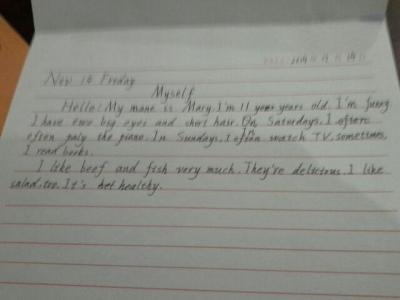 Nov 14 Friday
Myself
Hello! My mane is Mary. I'm 11 years old. I'm funny.
I have two big eyes and short hair. On Saturdays, I
often paly the piano. In Sundays, I often watch TV, sometimes,
I read books.
I like beef and fish very much. They're delicious. I like
salad, too. It's healthy.